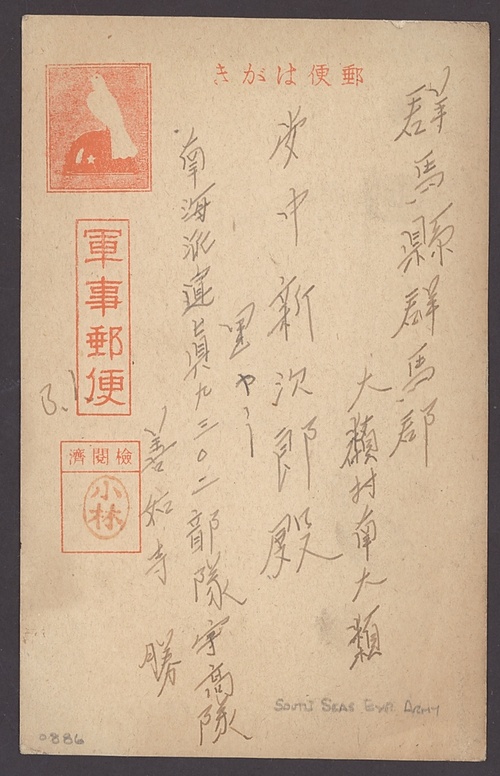 郵便はがき
群馬縣群馬郡
大類村南大類
堂中新次郎殿
南海派遣 九三〇二部隊 高隊
善如寺 勝
軍事郵便
檢閲濟
小林
South Seas Exp. Army
0886